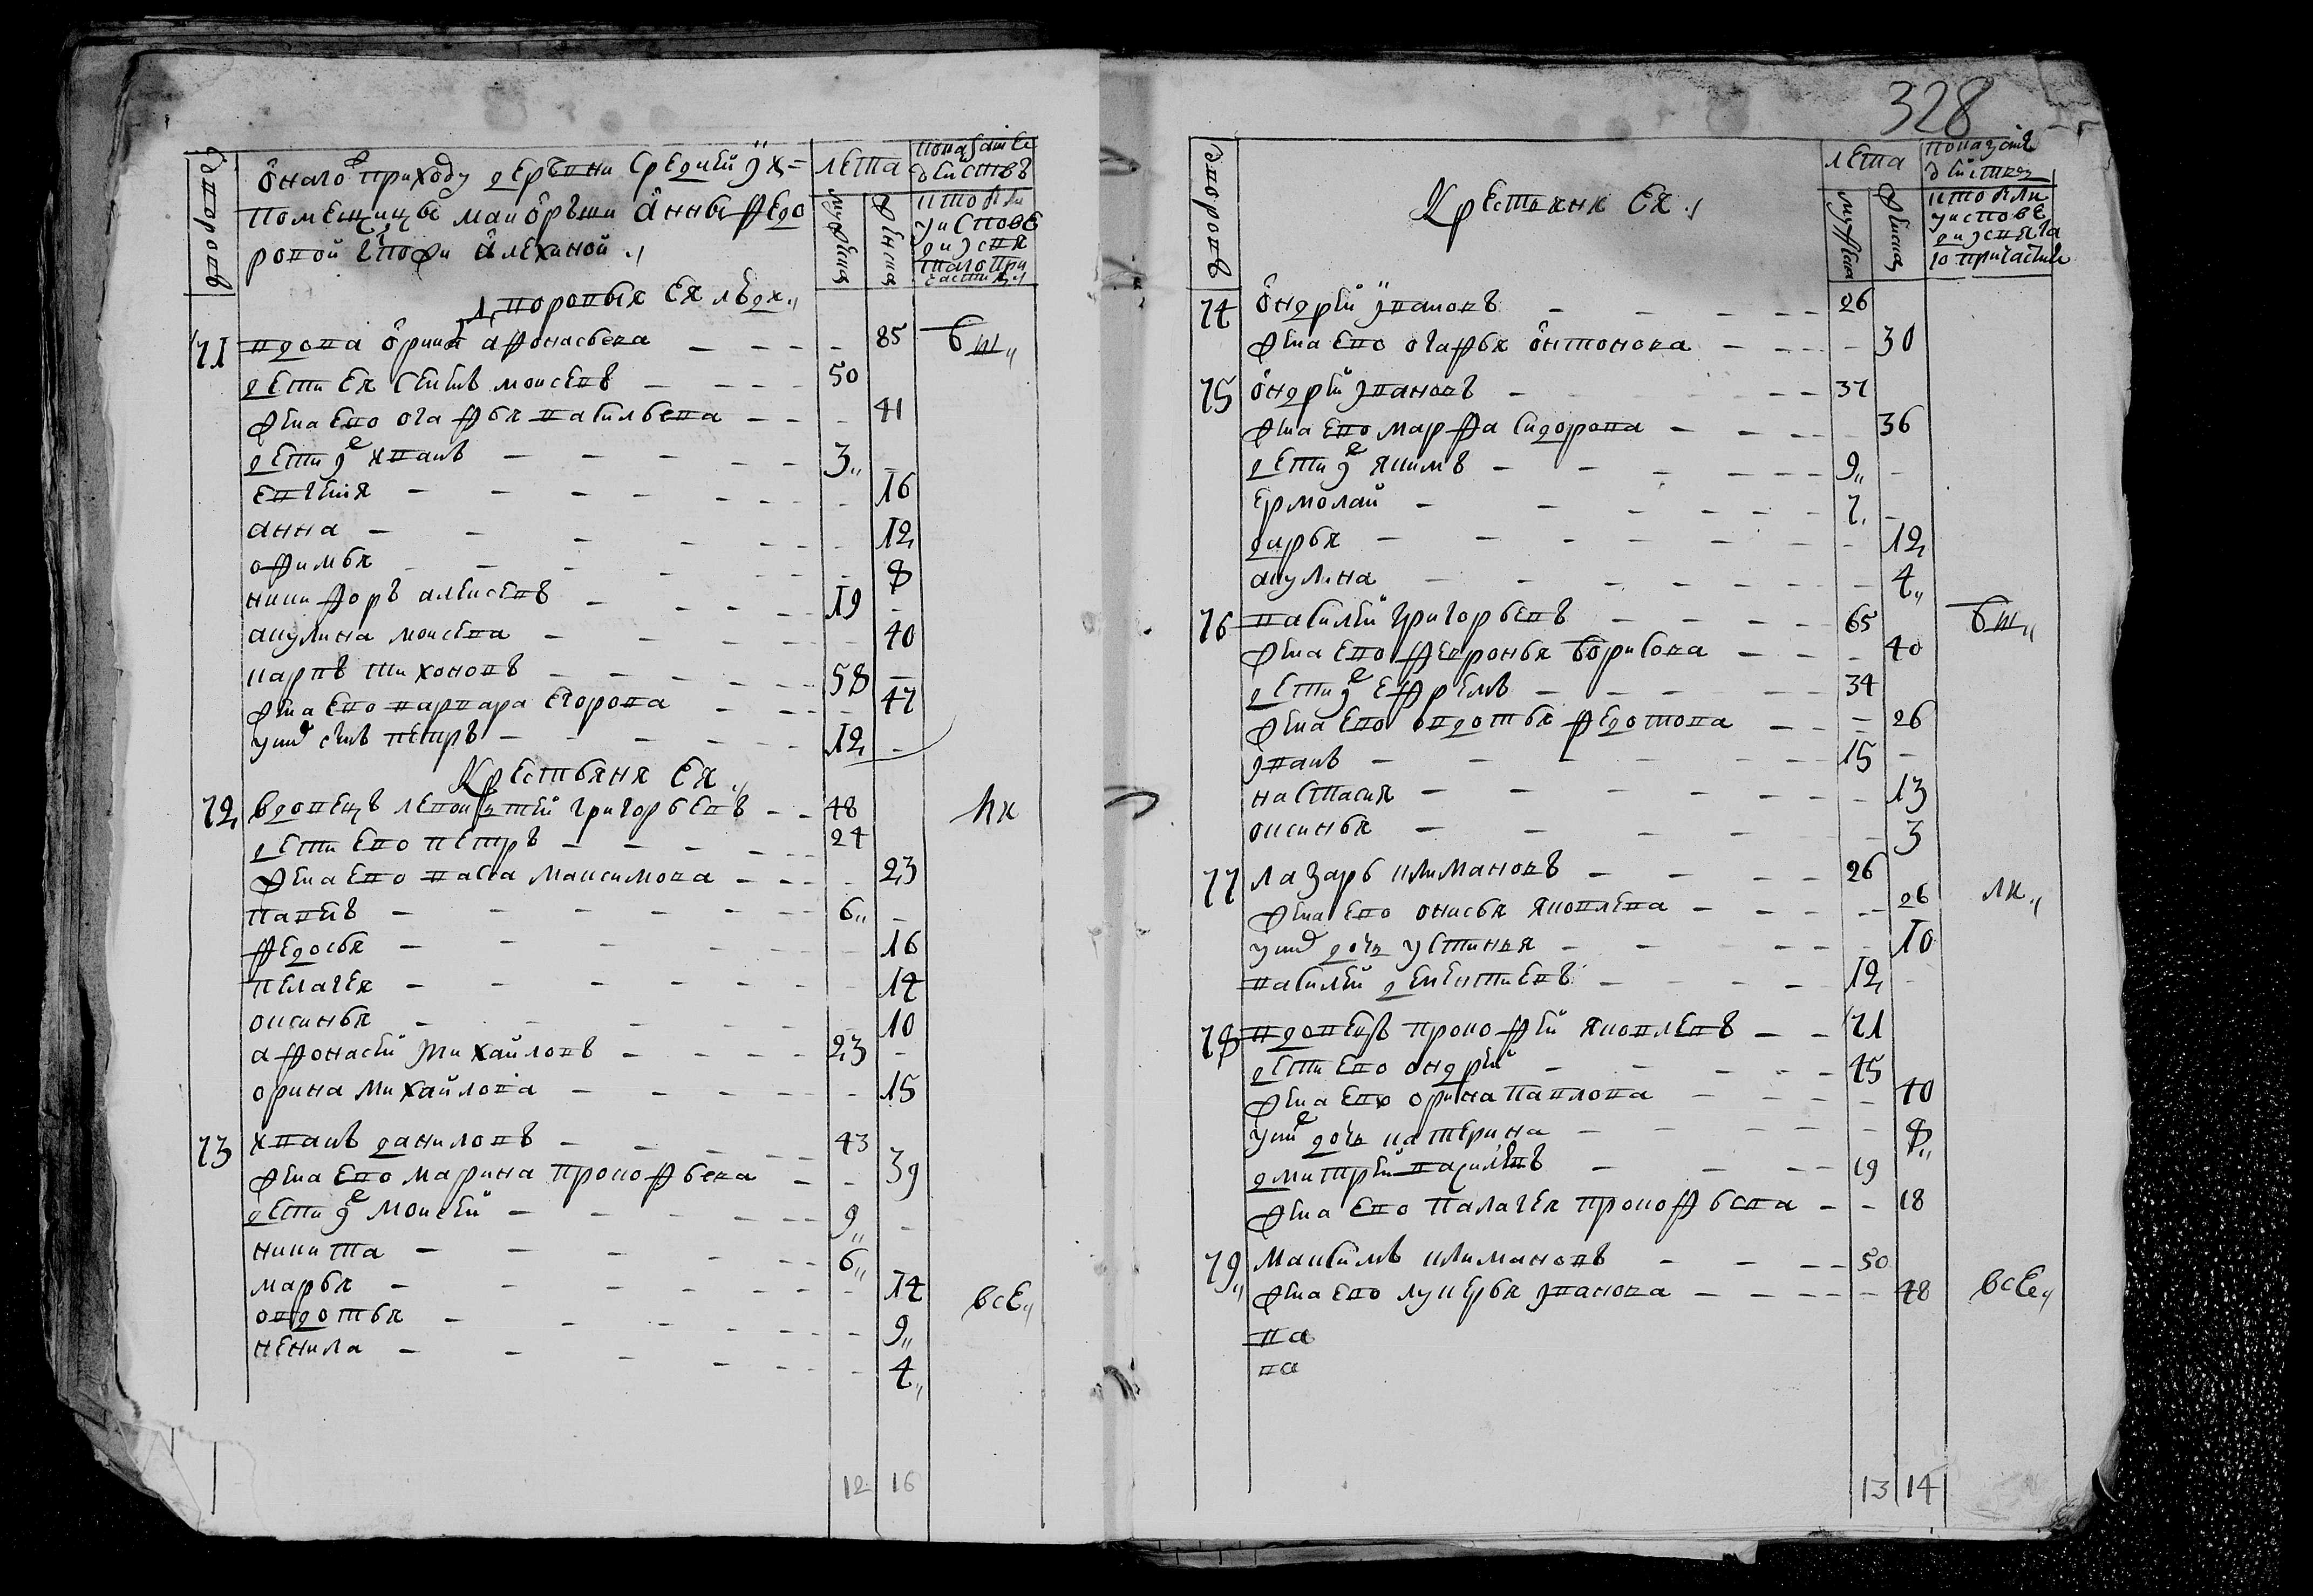 328
дворовъ
Онаго приходу деревни Средней Ух=
помещицы маиорши Анны Федо
ровой дочери Алехиной
лета
мужеска
женска
показание
действъ
кто были
у исповѣ
ди и свя
таго при
частия
Дворовыя ея люди
71 вдова Орина Афонасьева 85 бш
дети ея Сенъ Моисеевъ 50
жена ево Огафья Васильева 41
дети их Иванъ 3
Евгения 16
Анна 12
Офимья 8
Никифоръ Алексеевъ 19
Акулина Моисева 40
Карпъ Тихоновъ 58
жена ево Варвара Егорова 47
у них сынъ Петръ 12
Крестьяня Ея
72 вдовецъ Леонтей Григорьевъ 48
дети ево Петръ 24
жена ево Васса Максимова 23
Павелъ 6
Федосья 16
Пелагея 14
Оксинья 10
Афонасей Михайловъ 23
Орина Михайлова 15
73 Иванъ Даниловъ 43
жена ево Марина Прокофьева 39
дети их Моисей 9
Никита 6
Марья 14
Овдотья 9
Ненила 4
все
12 16
дворовъ
Крестьяня Ея
лета
мужеска
женска
показание
действъ
кто были
у исповѣ
ди и свята
го причастия
74 Ондрей Ивановъ 26
жена ево Огафья Онтонова 30
75 Ондрей Ивановъ 37
жена ево Марфа Сидорова 36
дети их Якимъ 9
Ермолай 7
Дарья 12
Акулина 4
76 Василей Григорьевъ 65 бш
жена ево Февронья Борисова 40
дети их Ефремъ 34
жена ево Овдотья Федотова 26
Иванъ 15
Настасия 13
Оксинья 3
77 Лазарь Климановъ 26
жена ево Онисья Яковлева 26
у них дочь Устинья 10
Василей Дементиевъ 12
78 вдовецъ Прокофей Яковлевъ 71
дети ево Ондрей 45
жена ево Орина Павлова 40
у них дочь Катерина 8
Дмитрей Васильевъ 19
жена ево Палагея Прокофьева 18
79 Максимъ Климановъ 50
жена ево Лукерья Иванова 48 все
ва
ва
13 14